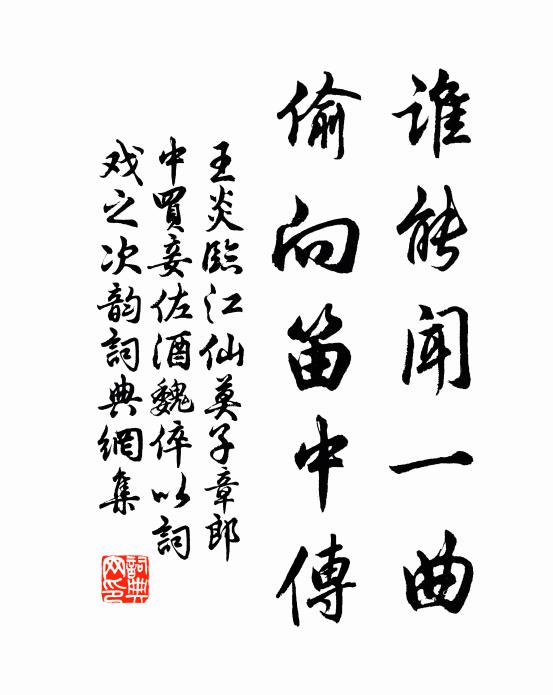 谁能闻一曲
偷向笛中傳
王炎臨江仙莫子章郎
中買妾佐酒魏倅以詞
戏之次韵詞典網集
詞典
网印